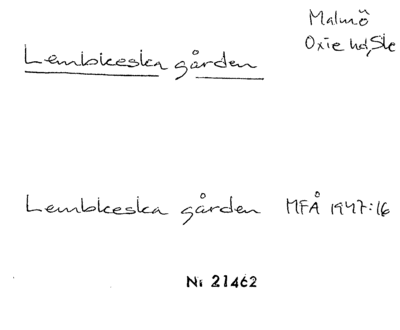 Malmö
Oxie hd, Ske
Lembkeska gården
Lembkeska gården MFÅ 1947:16
Nr 21462